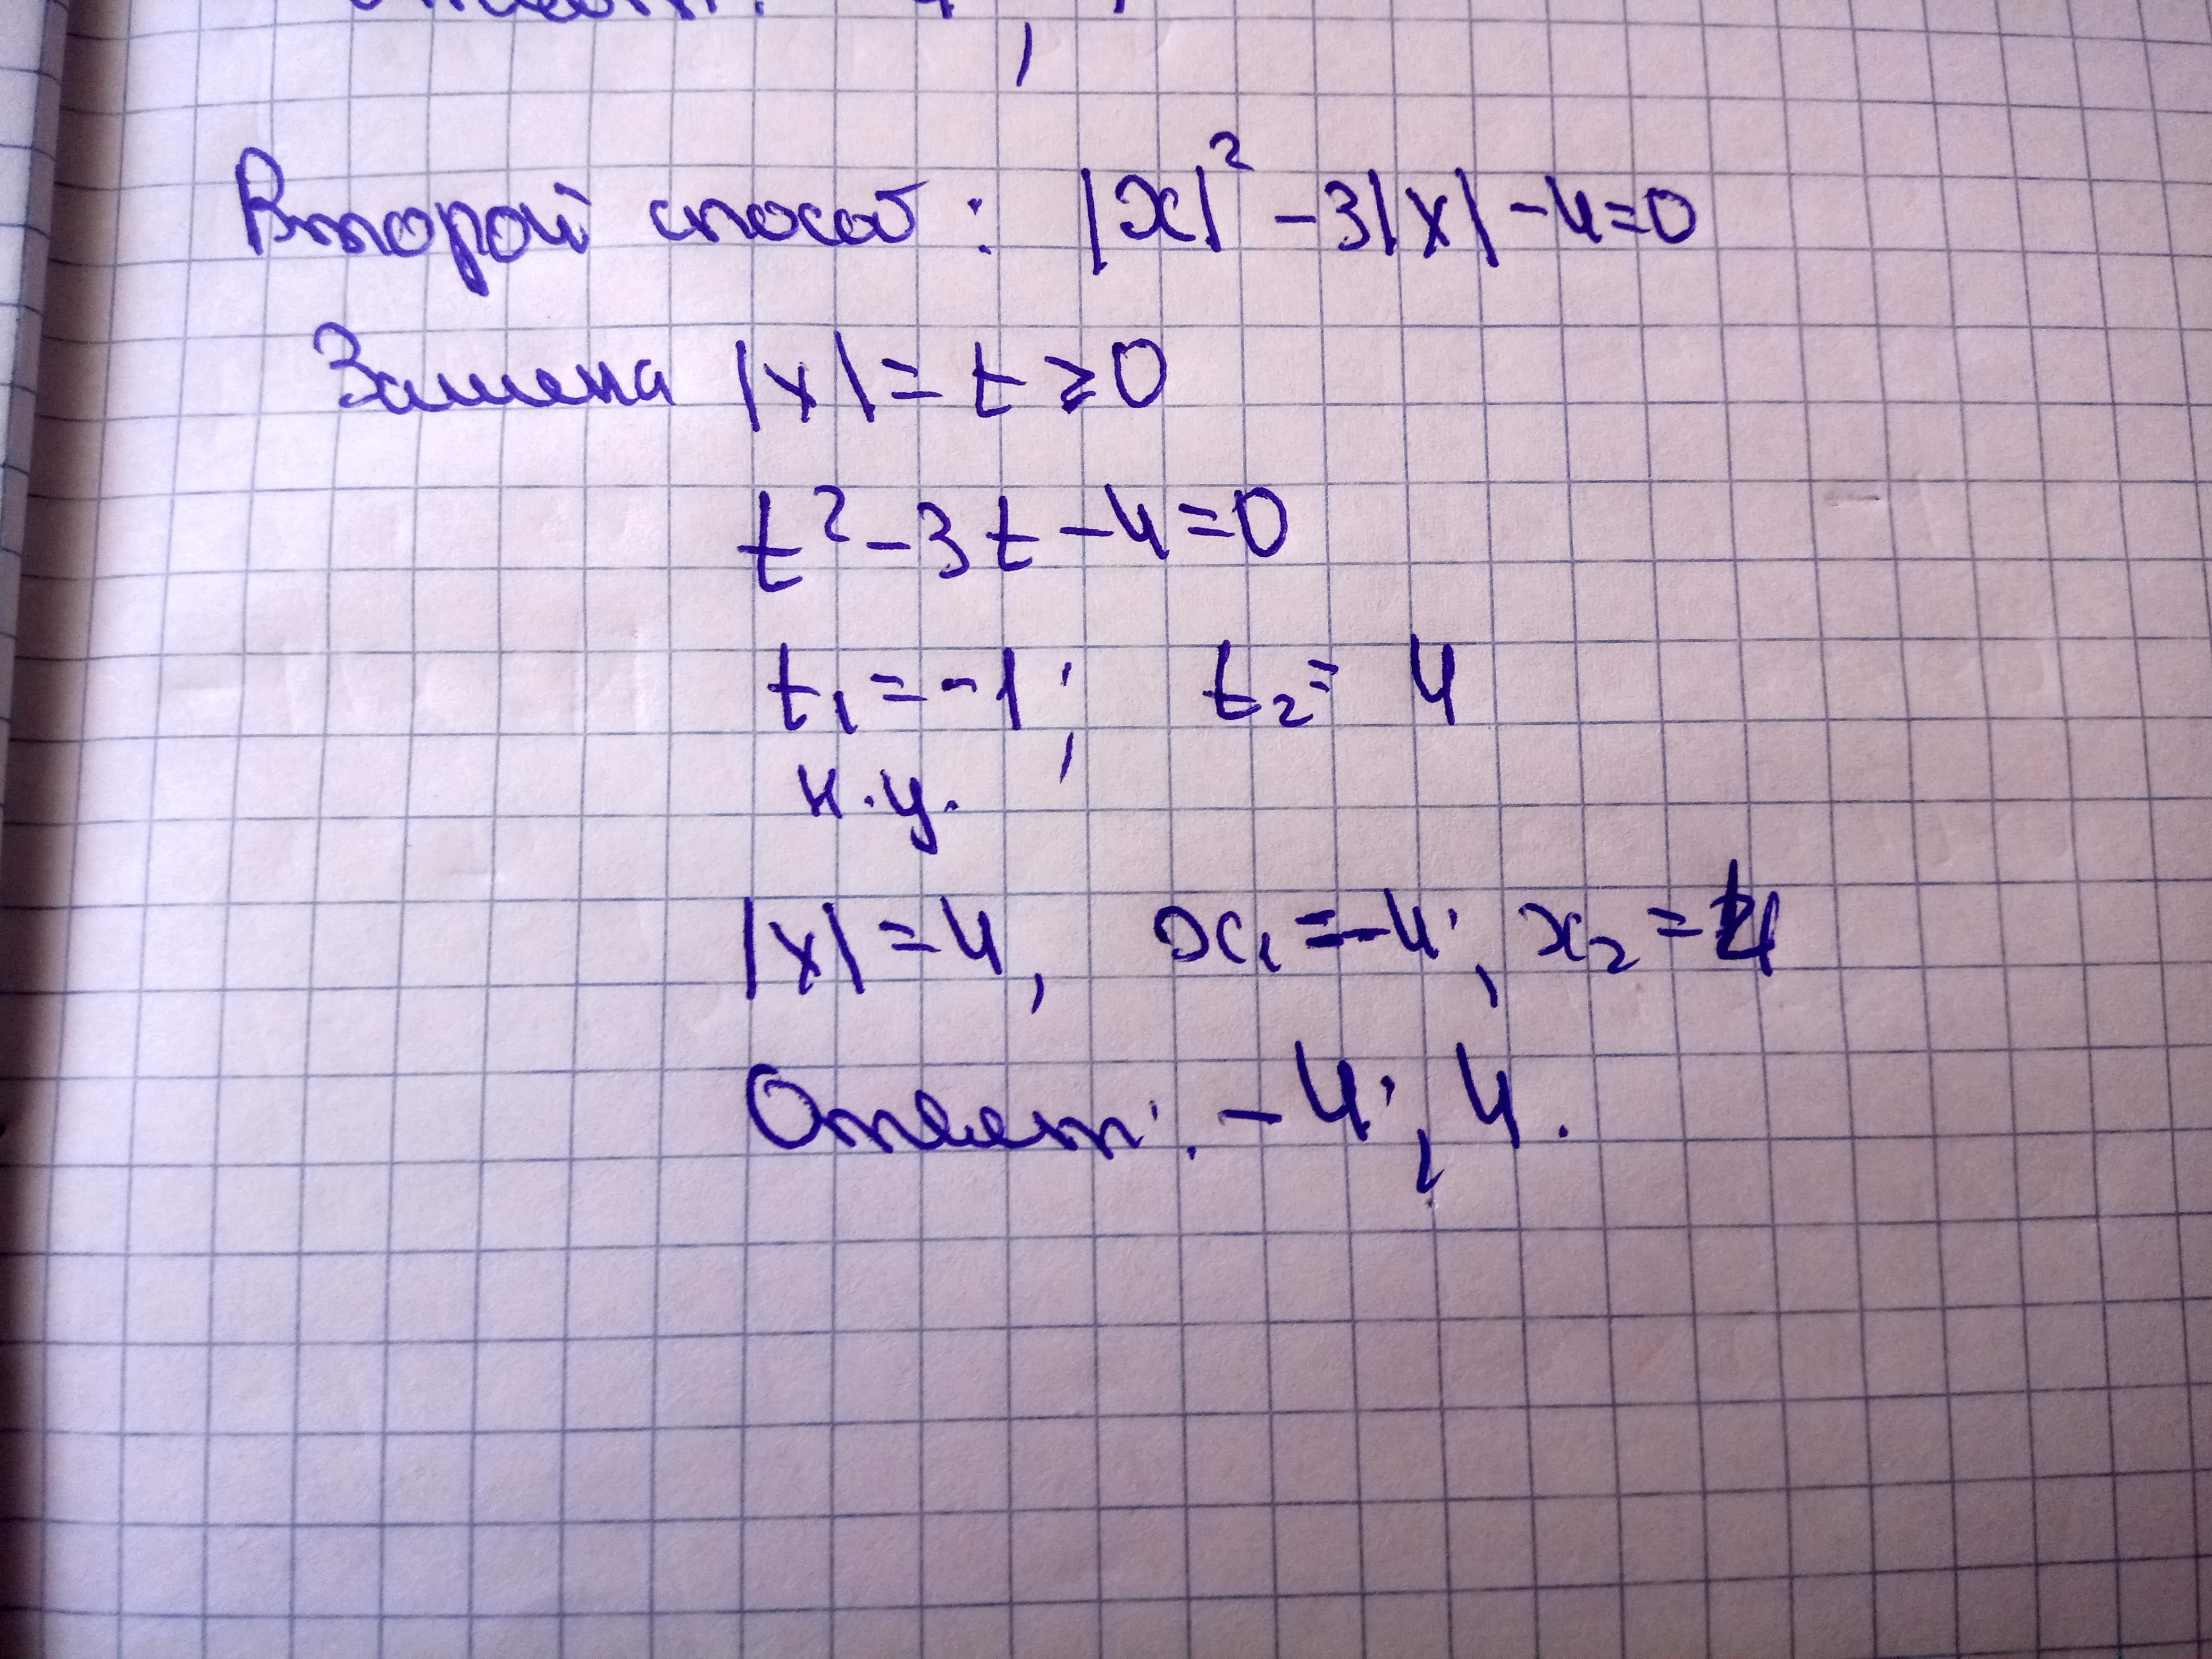 Второй способ: |x|² - 3|x| - 4 = 0
Замена |x| = t ≥ 0
t² - 3t - 4 = 0
t₁ = -1; t₂ = 4
н.у.
|x| = 4, x₁ = -4; x₂ = 4
Ответ: -4; 4.